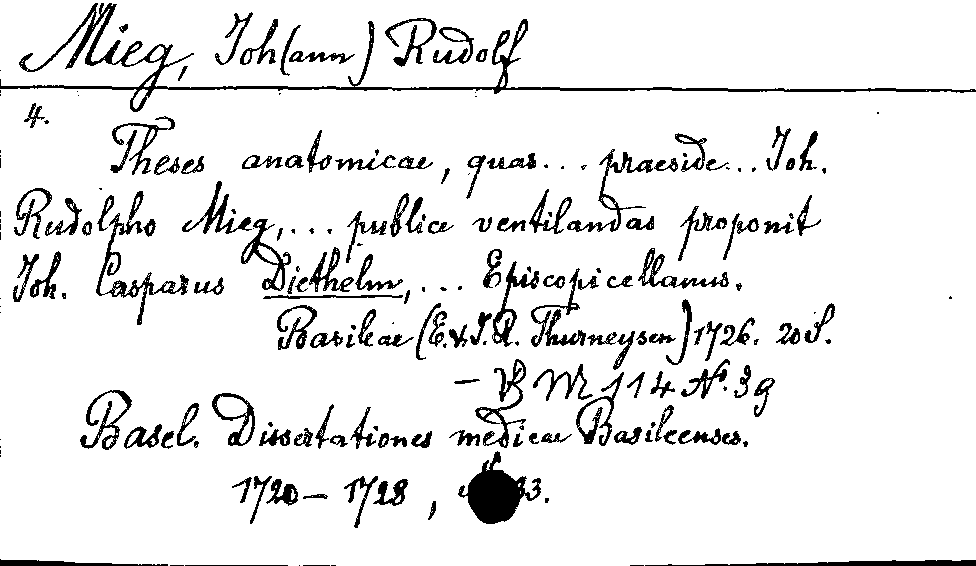 Mieg, Joh(ann) Rudolf
4.
Theses anatomicae, quas... praeside... Joh.
Rudolpho Mieg,... publice ventilandas proponit
Joh. Casparus Diethelm,... Episcopicellanus.
Basileae (E. & J. R. Thurneysen) 1726. 20 S.
- BM 114 No. 39
Basel. Dissertationes medicae Basileenses.
1720 - 1728, 33.